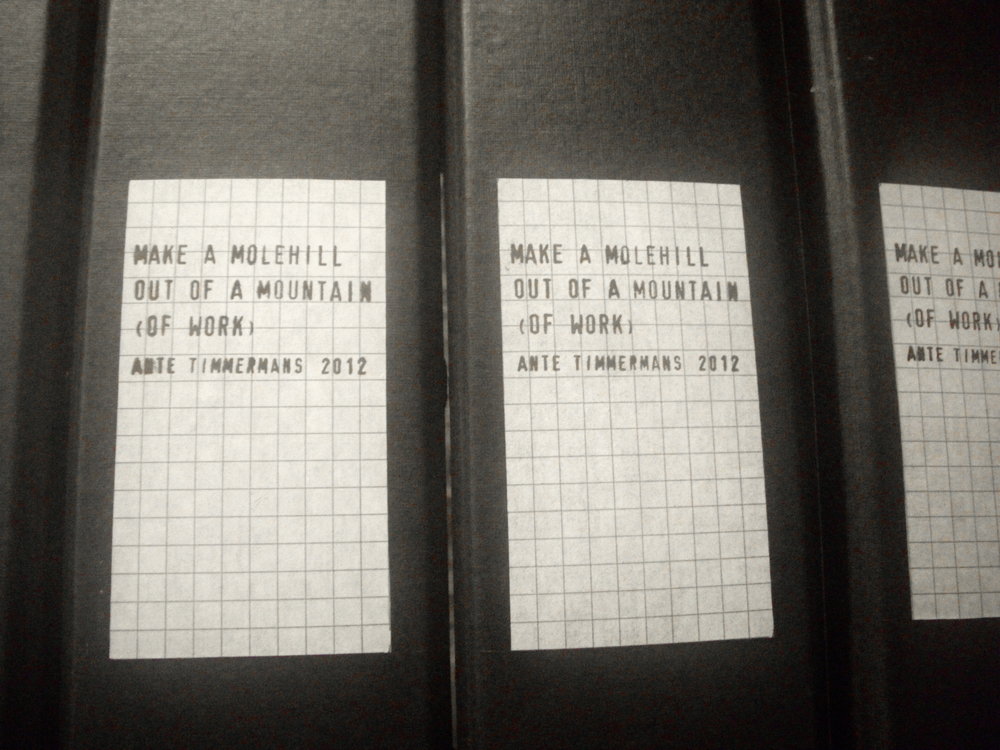 MAKE A MOLEHILL
OUT OF A MOUNTAIN
(OF WORK)
ANTE TIMMERMANS 2012
MAKE A MOLEHILL
OUT OF A MOUNTAIN
(OF WORK)
ANTE TIMMERMANS 2012
MAKE A
OUT OF A
(OF WORK)
ANTE